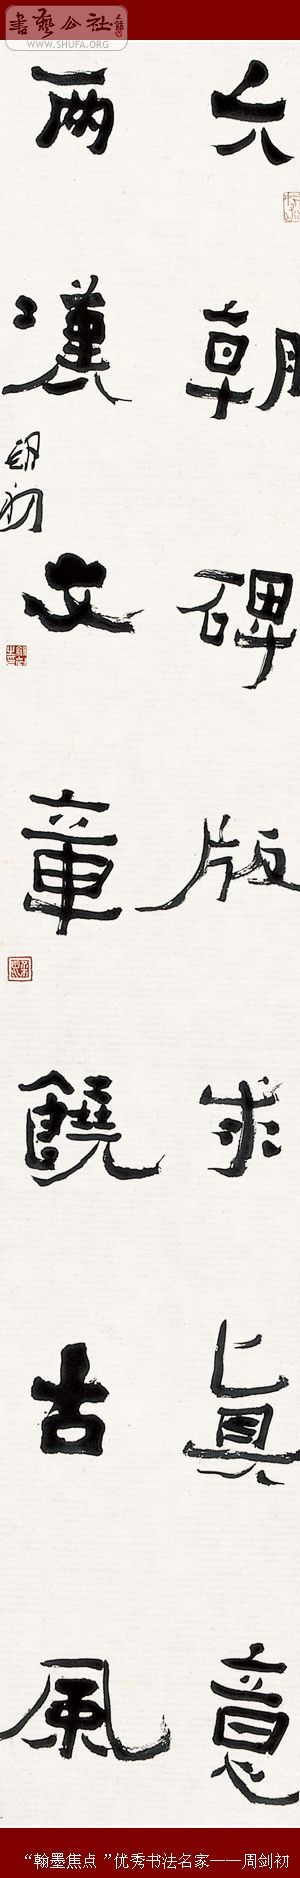 書藝公社
WWW.SHUFA.ORG
六朝碑版求真意
兩漢文章饒古風
剑初
“翰墨焦点 ”优秀书法名家——周剑初